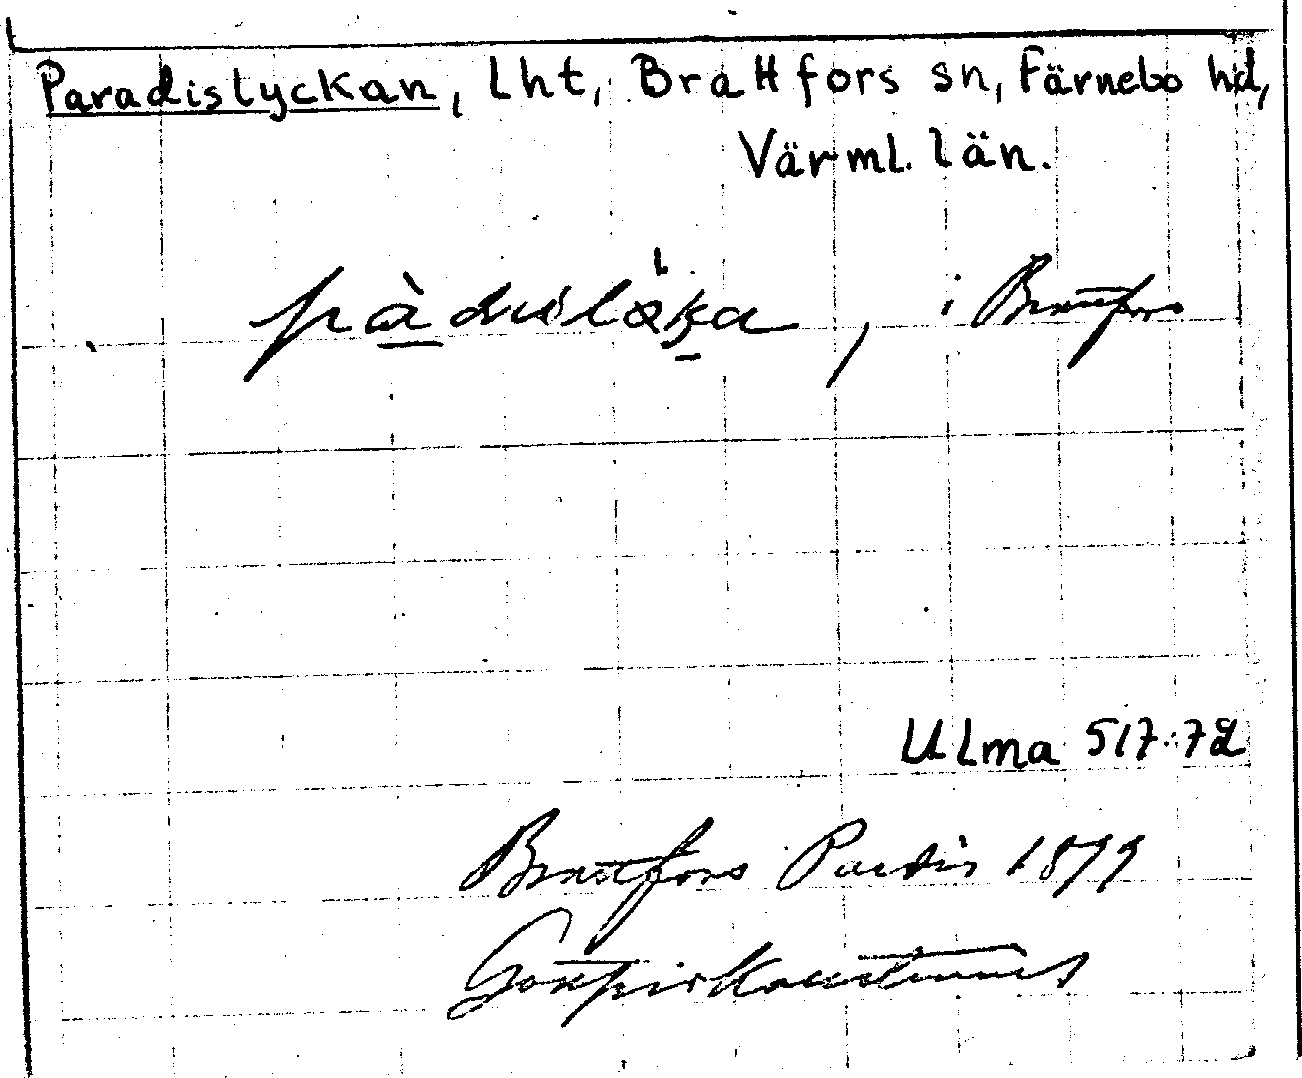 Paradislyckan, Lht, Brattfors sn, Färnebo hd,
Värml. län.
pàdislöka, i Brattfors
Ulma 517:72
Brattfors Pardis 1899